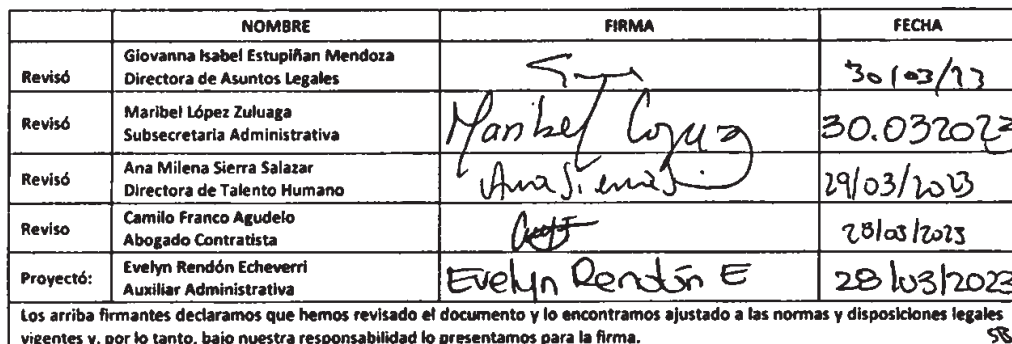 NOMBRE FIRMA FECHA
Giovanna Isabel Estupiñan Mendoza
Revisó Directora de Asuntos Legales 30/03/23
Maribel López Zuluaga
Revisó Subsecretaria Administrativa Maribel 30.032023
Ana Milena Sierra Salazar
Revisó Directora de Talento Humano Ana Sierra S. 29/03/2023
Camilo Franco Agudelo
Reviso Abogado Contratista 28/03/2023
Evelyn Rendón Echeverri
Proyectó: Auxiliar Administrativa Evelyn Rendón E 28/03/2023
Los arriba firmantes declaramos que hemos revisado el documento y lo encontramos ajustado a las normas y disposiciones legales
vigentes y, por lo tanto, bajo nuestra responsabilidad lo presentamos para la firma. SB